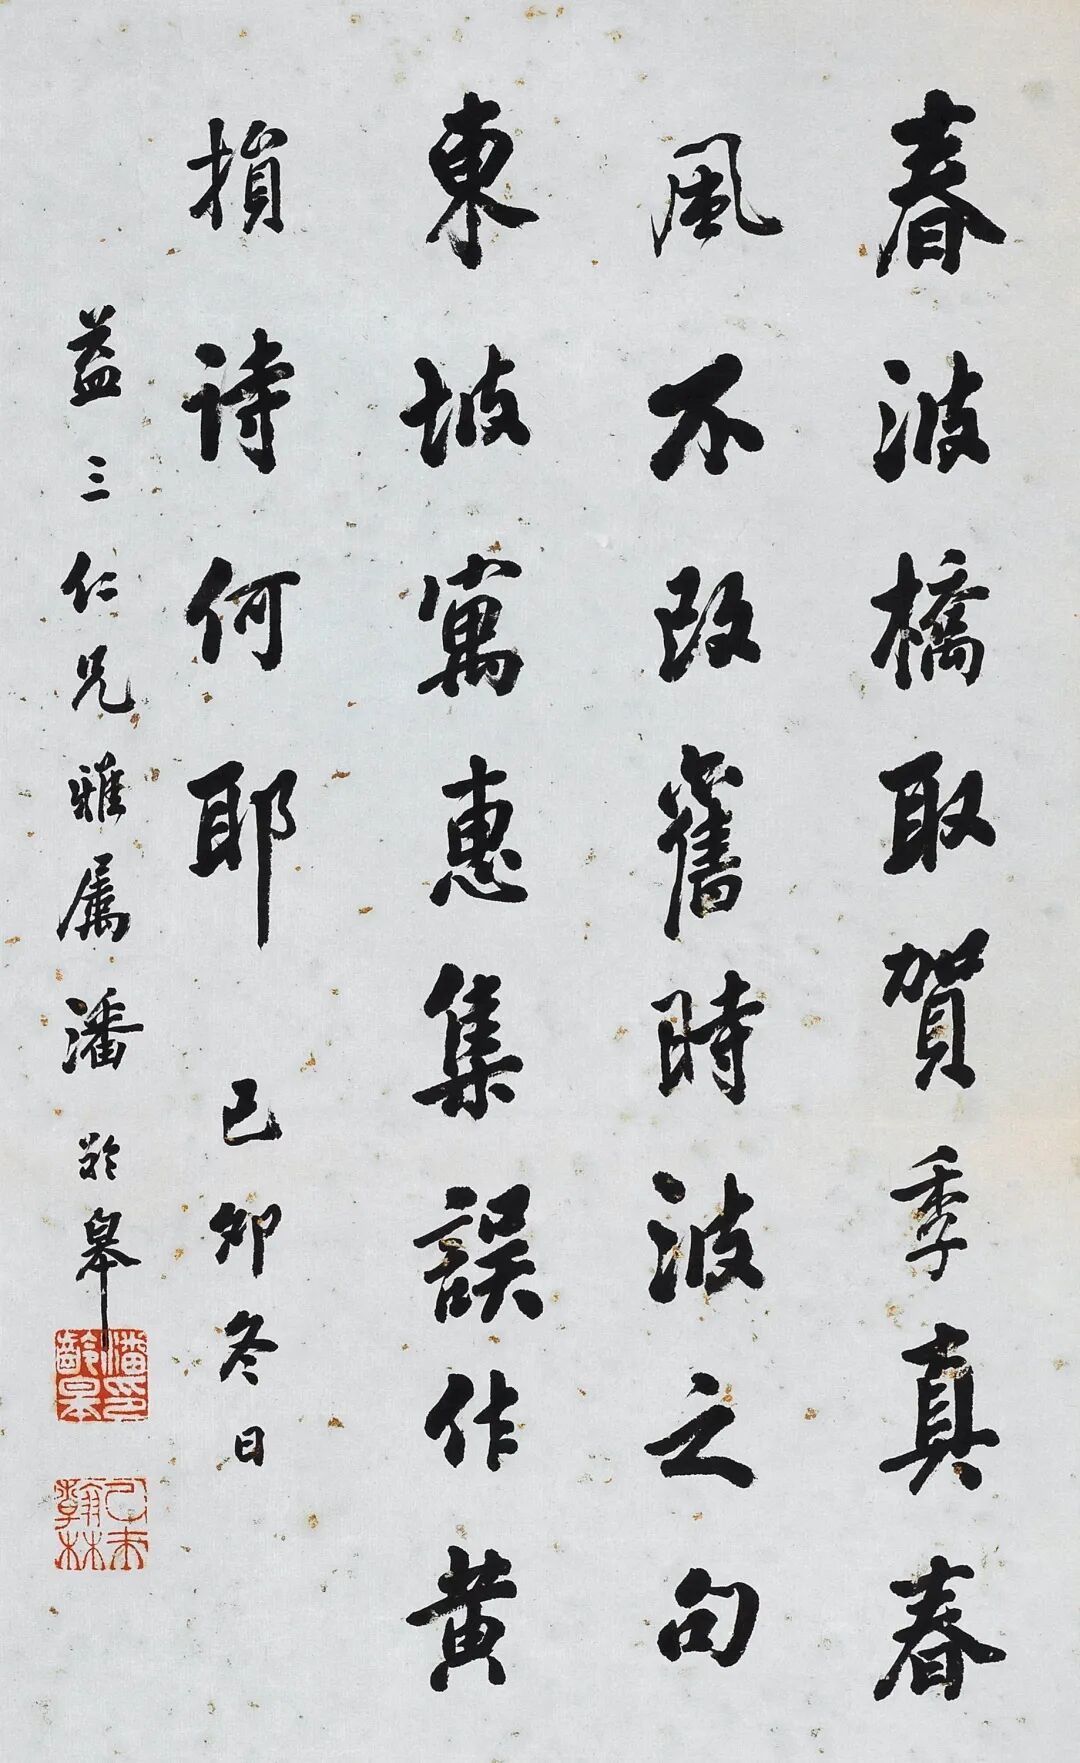 春波橋取賀季真春
風不改舊時波之句
東坡寓惠集誤作黄
損诗何耶 己卯冬日
益三仁兄雅属潘龄皋
潘印齡皋
乙未翰林